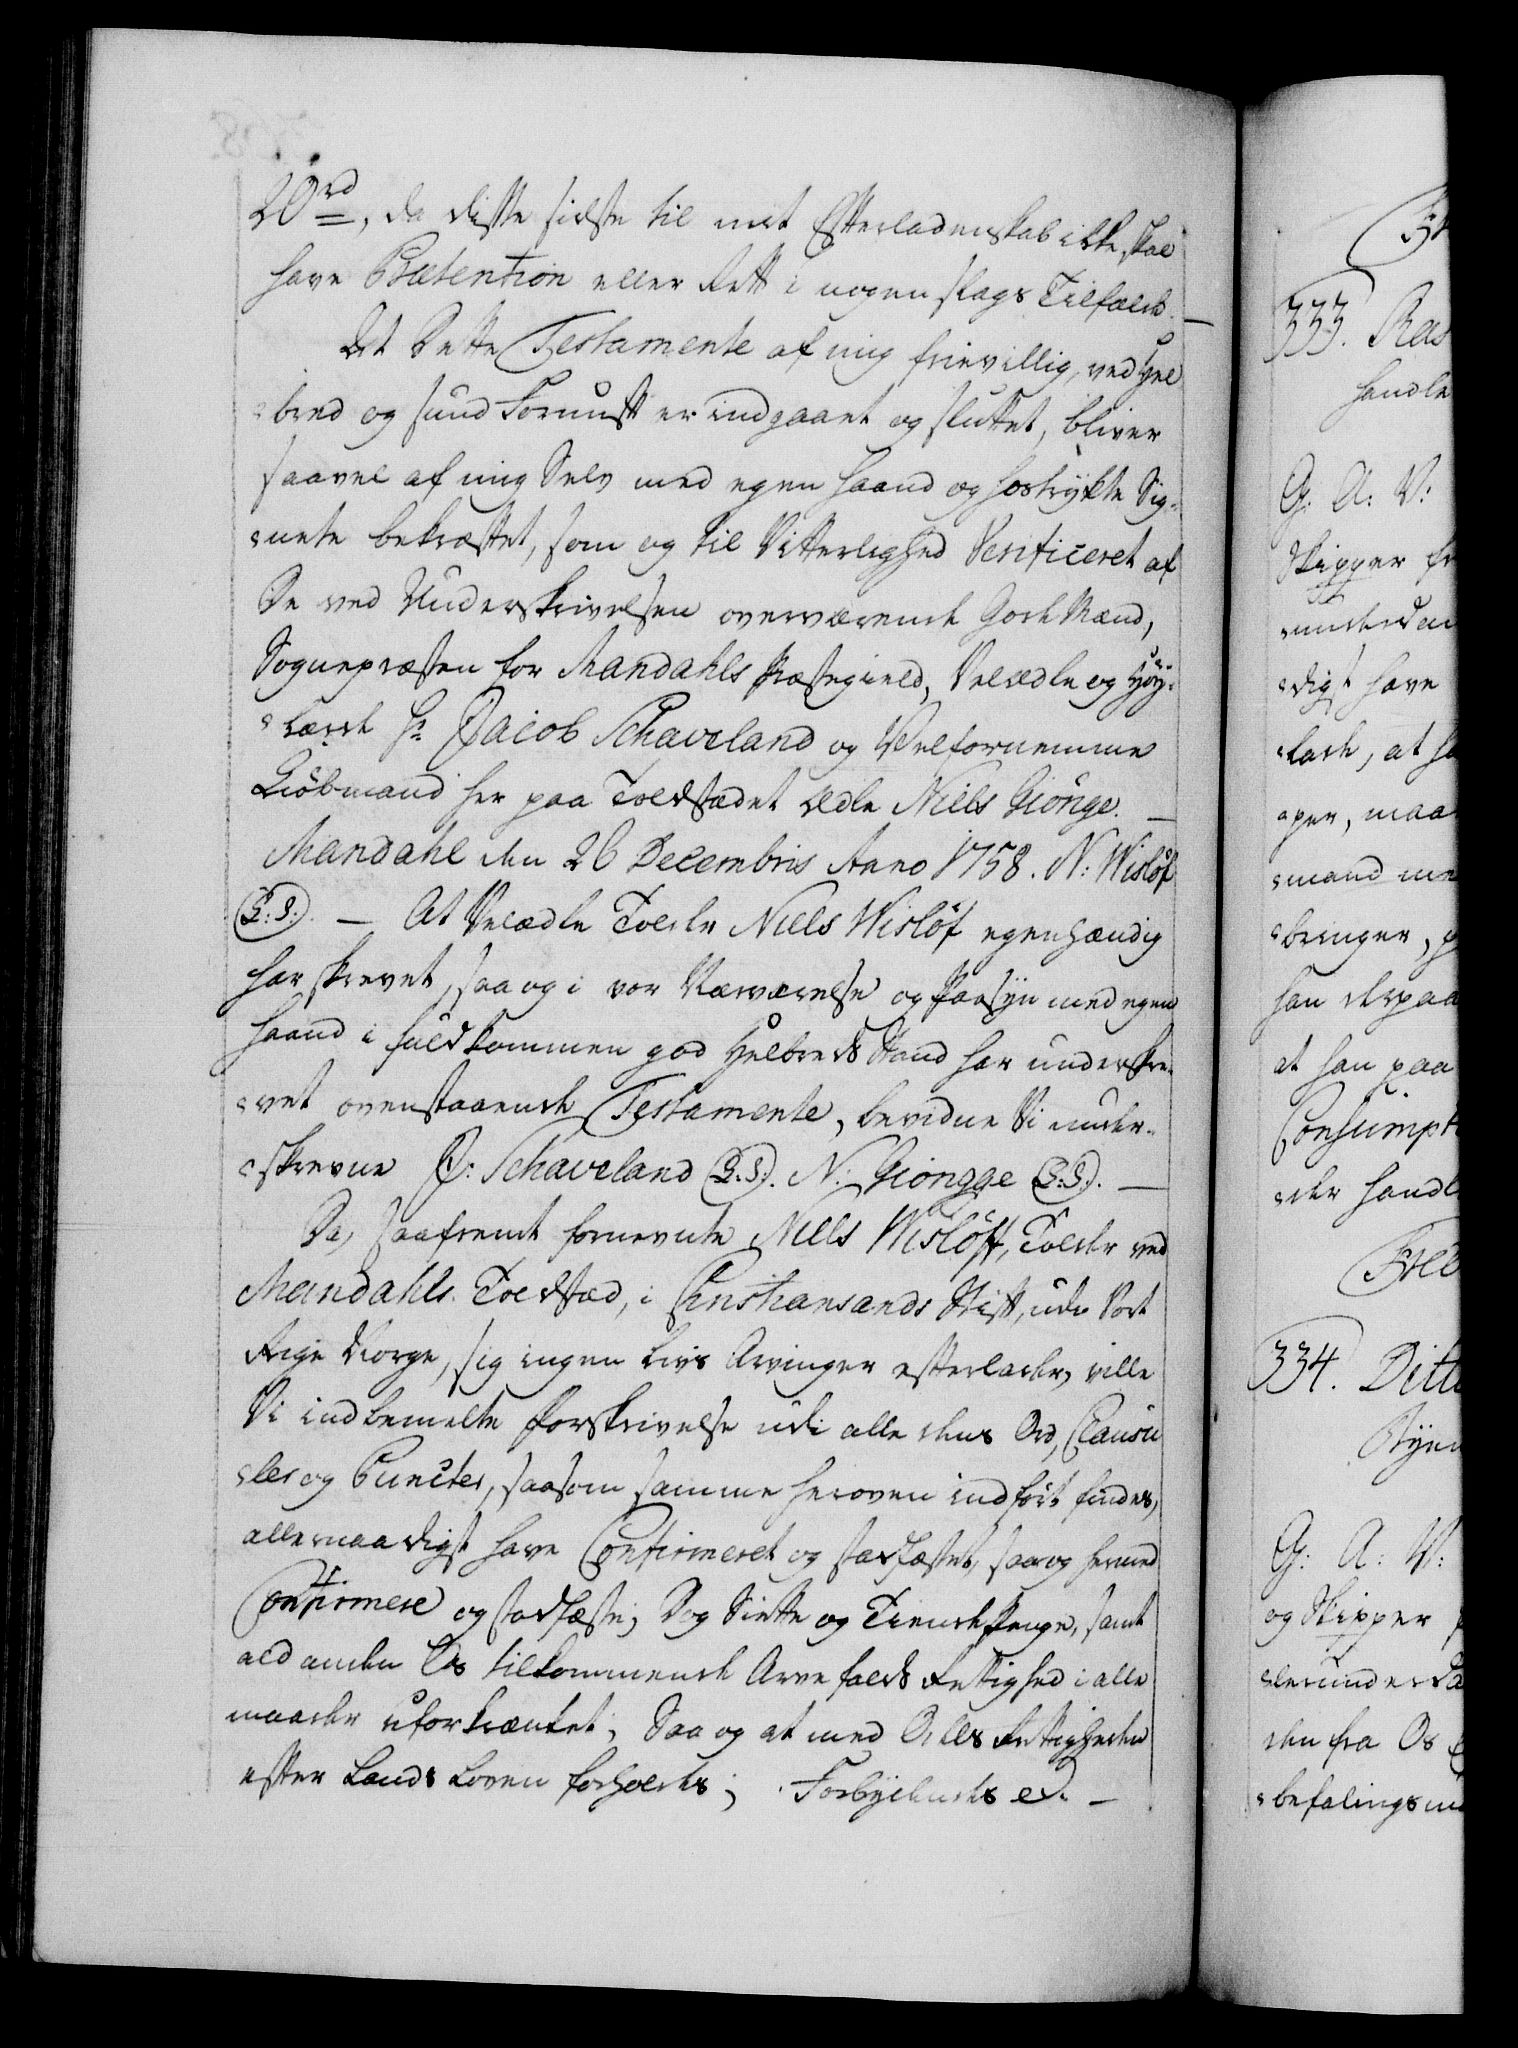 20 rd, da disse sidste til mit Efterladenskab ikke skal
have Prætention eller Rett i nogen slags Tilfælde. —
At Dette Testamente af mig frievillig, ved Hel-
bred og sund Fornuft er indgaaet og sluttet, bliver
saavel af mig Selv med egen Haand og hostrykte Sig-
nete bekræftet, som og til Vitterlighed Verificeret af
De ved Underskrivelsen overværende Gode Mænd,
Sognepræsten for Mandahls Præstegield, Velædle og Høy-
lærde Hr. Jacob Schaveland og Velfornemme
Kiöbmand her paa Toldstædet Ædle Niels Giönge. —
Mandahl den 26 Decembris Anno 1758. N: Wislöf
(L:S:). — At Velædle Tolder Niels Wislöf egenhændig
har skrevet, saa og i vor Nærværelse og Paasyn med egen
Haand i fuldkommen god Helbreds Stand har underskre-
vet ovenstaaende Testamente, bevidne Vi under-
skrevne J: Schaveland (L:S:). N: Giöngge (L:S:). —
Da, saafremt fornevnte Niels Wislöff, Tolder ved
Mandahls Toldstæd, i Christiansands Stift, udi Vort
Rige Norge, sig ingen Livs Arvinger efterlader, ville
Vi indbemelte Forskrivelse udi alle dens Ord, Clausu-
ler og Puncter, saasom samme heroven indfört findes,
allernaadigst have Confirmeret og stadfæstet, saa og hermed
Confirmere og stadfæste; Dog Siette og Tiende Penge, samt
ald anden Os tilkommende Arvefalds Rettighed i alle
maader uforkrænket; Saa og at med Odels Rettigheden
efter Lands Loven forholdes; Forbydendes etc. —
333. Ras
handle
G: A: V:
Skipper fr
digst have
lade, at h
per, maa
mand me
bringer, p
han derpaa
at han paa
Consumpt
der handl
334. Ditt
G: A: V:
og Skipper
den fra Os
befalings m